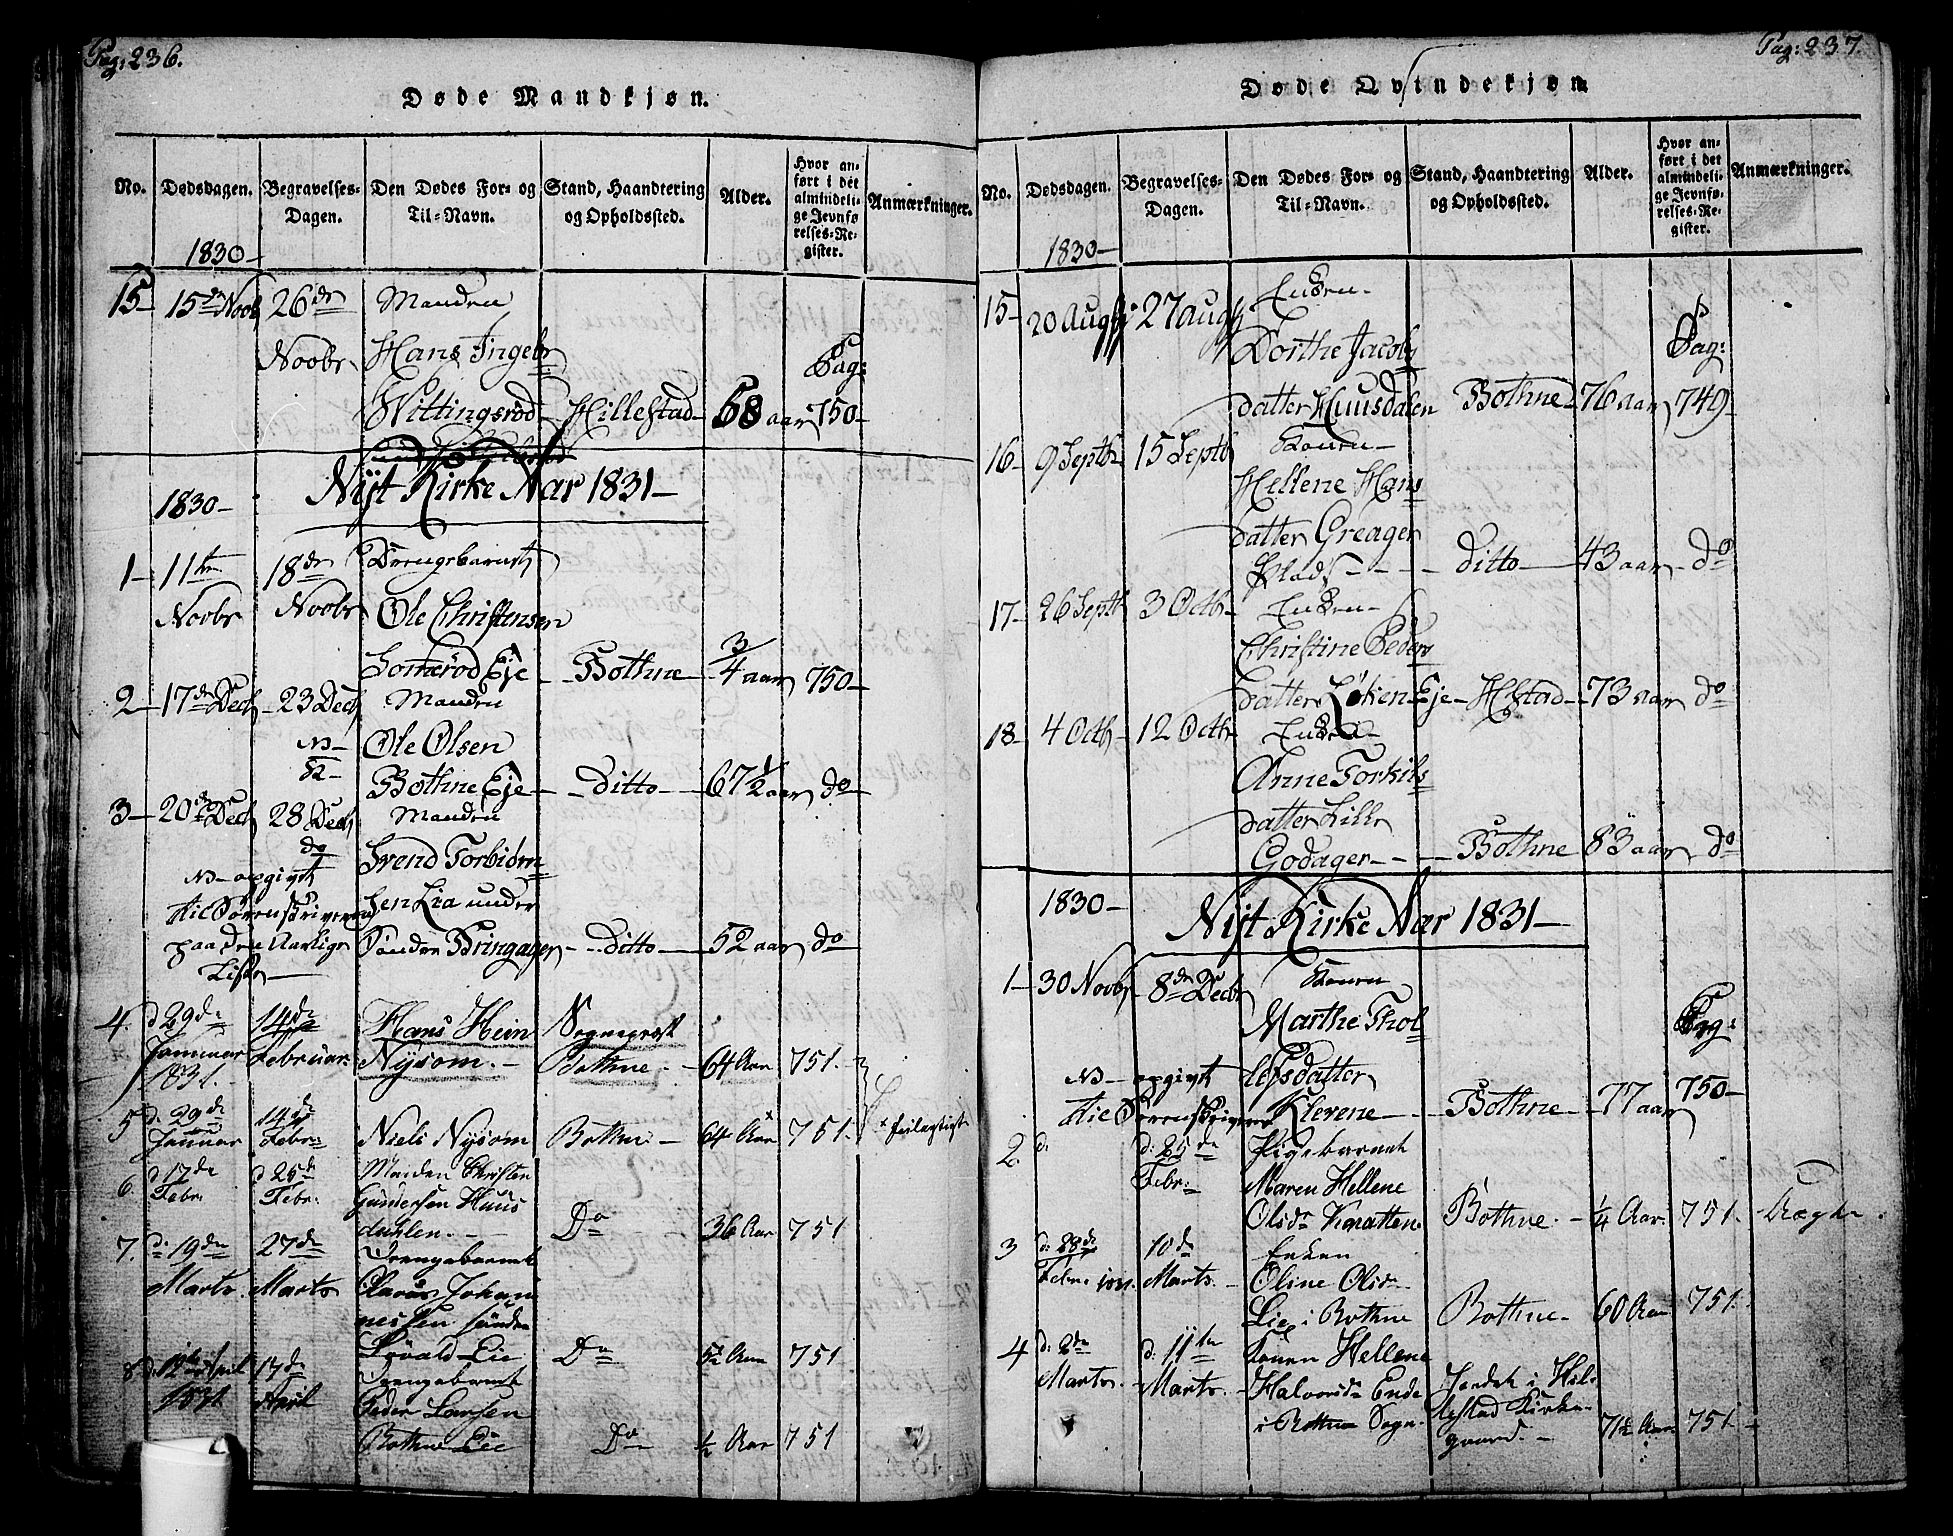 Pag: 236.
Døde Mandkjøn.
No. Dødsdagen. Begravelses-Dagen. Den Dødes For- og Til-Navn. Stand, Haandtering og Opholdssted. Alder. Hvor anført i det almindelige Jevnførelses-Register. Anmærkninger.
1830-
15- 15de Novbr 26de Manden
Novbr Hans Ingebr Pag:
Wittingsrød Hillestad 68 aar 750-
Nÿt Kirke Aar 1831-
1830-
1- 11te 18de Drengebarnet
Novbr Novbr Ole Christensen
Somerød Eje Bothne 3/4 aar 750-
2- 17de Decb 23 Decb Manden
NB Ole Olsen
Bothne Eje Ditto 67 1/2 aar do
3- 20de Decb 28 Decb Manden
do Svend Torbiørn
NB opgivet sen Lia under
til Sorenskriveren
paa den Aarlige Søndre Bringager Ditto 52 aar do
Liste
4. d 29de 14de Hans Hein Sognepræst
Januar Februar. Nysom. Bothne. 64 Aar 751.
1831.
5 d. 29de 14de
Januar Febr: Niels Nysom Bothne 64 Aar 751. * feilagtigt
6. d 17de d 25de Manden Christen
Febr. Febr: Gundersen Huus
dahlen. Do 36 Aar 751
7. d. 19de 27de Drengebarnet
Marts. Marts Johan
nessen søndre
Eie Do 5 1/2 Aar 751
8 d. 12te April 17de Drengebarnet
1831 April Peder Larsen
Bothne Eie Do 1/2 Aar 751
Pag: 237.
Døde Qvindekjøn
No. Dødsdagen. Begravelses-Dagen. Den Dødes For- og Til-Navn. Stand, Haandtering og Opholdssted. Alder. Hvor anført i det almindelige Jevnførelses-Register. Anmærkninger.
1830-
15- 20 Augst 27 Augst Enken
Dorthe Jacobs Pag:
datter Huusdalen Bothne 76 aar 749-
16- 9 Septb 15 Septb Konen
Hellene Hans
datter Greager
Plads Ditto 43 aar do
17- 26 Septb 3 Octb Enken
Christine Peders
datter Løken Eje Hestad 73 aar do
18- 4 Octb 12 Octb Enken
Anne Torkils
datter Lille
Godager Bothne 83 aar do
1830- Nÿt Kirke Aar 1831-
1- 30 Novbr 8de Decbr Konen
Marthe Thol Pag:
NB opgivt lefsdatter
til Sorenskriveren Klevene Bothne 77 aar 750-
2. d. d. 25de Pigebarnet
Febr: Maren Hellene
Olsdr Knatten Bothne. 1/4 Aar. 751.
3 d: 28de 10de Enken
Febr 1831. Marts. Oline Olsdr
Lie i Bothne Bothne 60 Aar 751.
4 d: 2de d: 11te Konen Hellene
Marts. Marts. Halvorsdr Ende Jordet i Hil-
i Bothne Sogn. lestad Kirke-
gaard. 71 1/2 Aar 751.